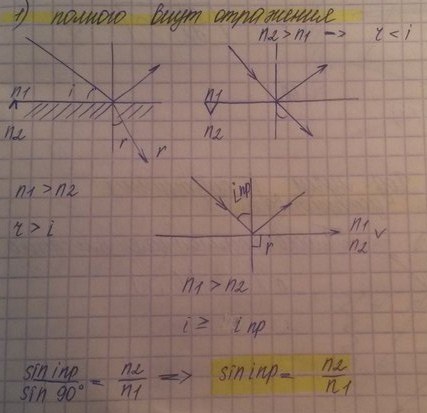 1) полного внут отражения
n2 > n1 => r < i
n1 i
n2
r r
n1
n2
n1 > n2
r > i
iпр
n1
n2
r
n1 > n2
i ≥ iпр
sin iпр / sin 90° = n2 / n1 => sin iпр = n2 / n1